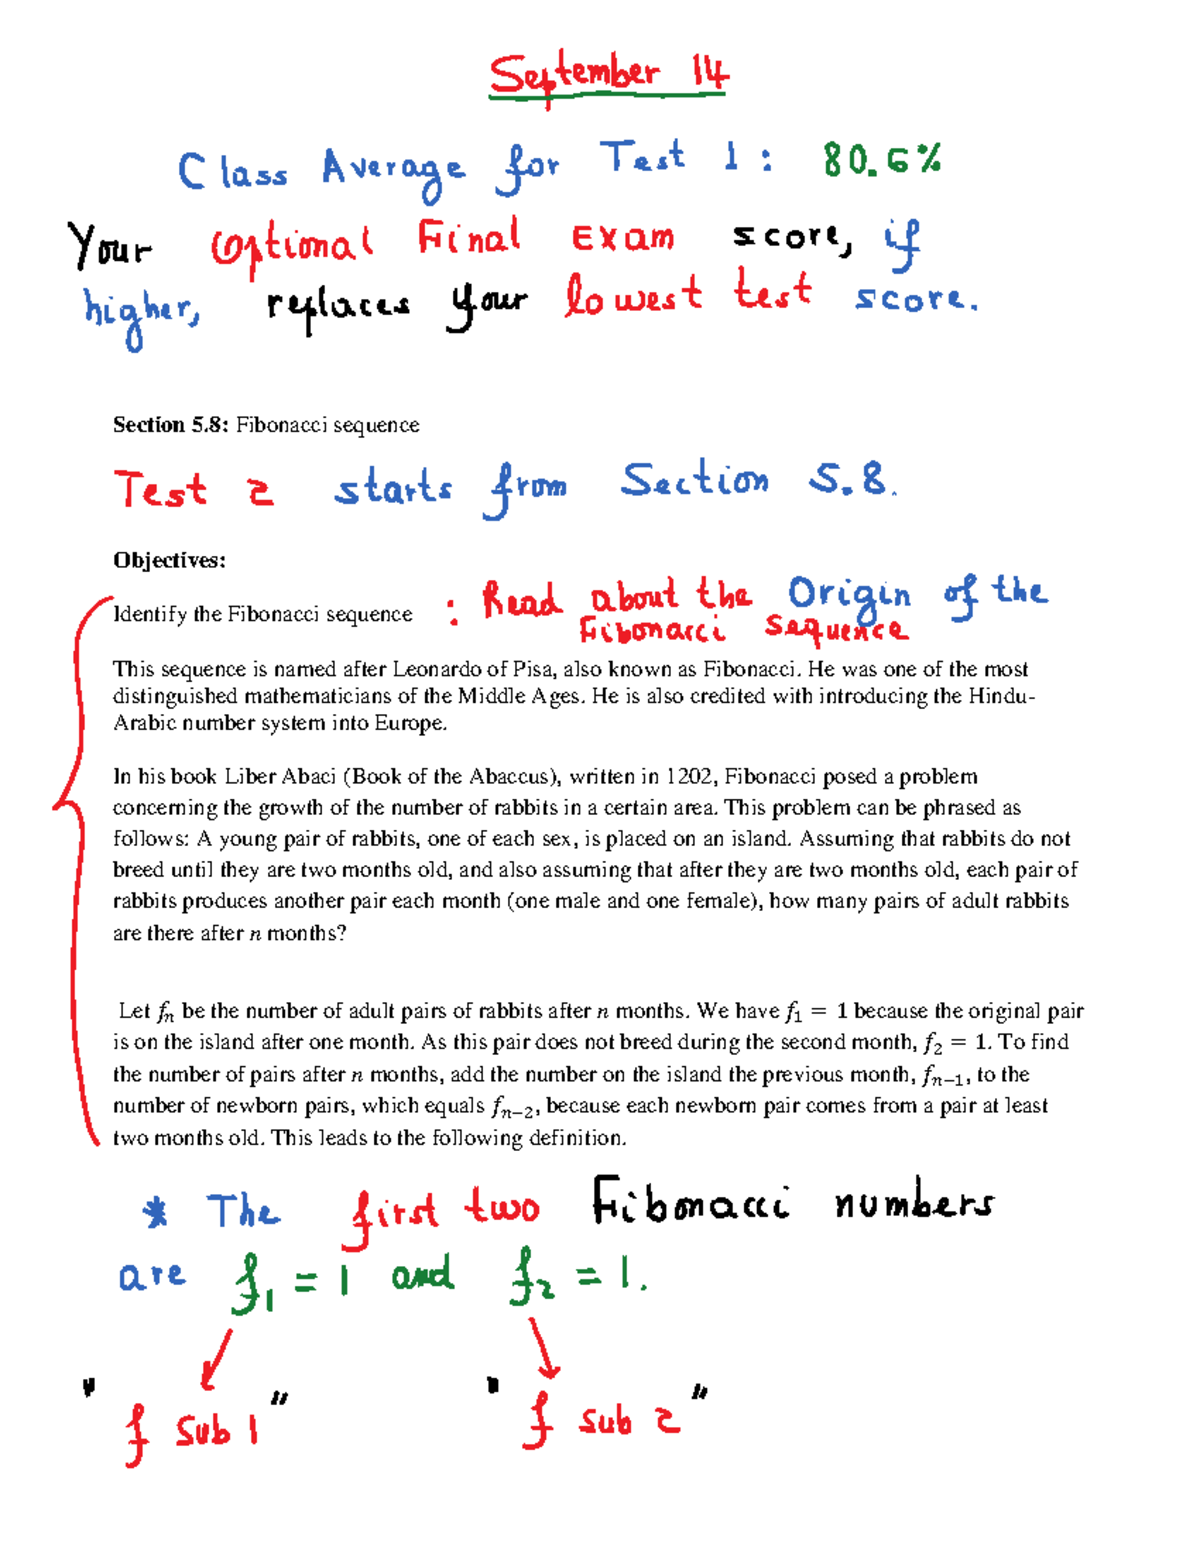 September 14
Class Average for Test 1: 80.6%
Your Optional Final Exam score, if
higher, replaces your lowest test score.
Section 5.8: Fibonacci sequence
Test 2 starts from Section 5.8.
Objectives:
Identify the Fibonacci sequence : Read about the Origin of the
Fibonacci Sequence
This sequence is named after Leonardo of Pisa, also known as Fibonacci. He was one of the most
distinguished mathematicians of the Middle Ages. He is also credited with introducing the Hindu-
Arabic number system into Europe.
In his book Liber Abaci (Book of the Abaccus), written in 1202, Fibonacci posed a problem
concerning the growth of the number of rabbits in a certain area. This problem can be phrased as
follows: A young pair of rabbits, one of each sex, is placed on an island. Assuming that rabbits do not
breed until they are two months old, and also assuming that after they are two months old, each pair of
rabbits produces another pair each month (one male and one female), how many pairs of adult rabbits
are there after n months?
Let fₙ be the number of adult pairs of rabbits after n months. We have f₁ = 1 because the original pair
is on the island after one month. As this pair does not breed during the second month, f₂ = 1. To find
the number of pairs after n months, add the number on the island the previous month, fₙ₋₁, to the
number of newborn pairs, which equals fₙ₋₂, because each newborn pair comes from a pair at least
two months old. This leads to the following definition.
* The first two Fibonacci numbers
are f₁ = 1 and f₂ = 1.
"f sub 1" "f sub 2"